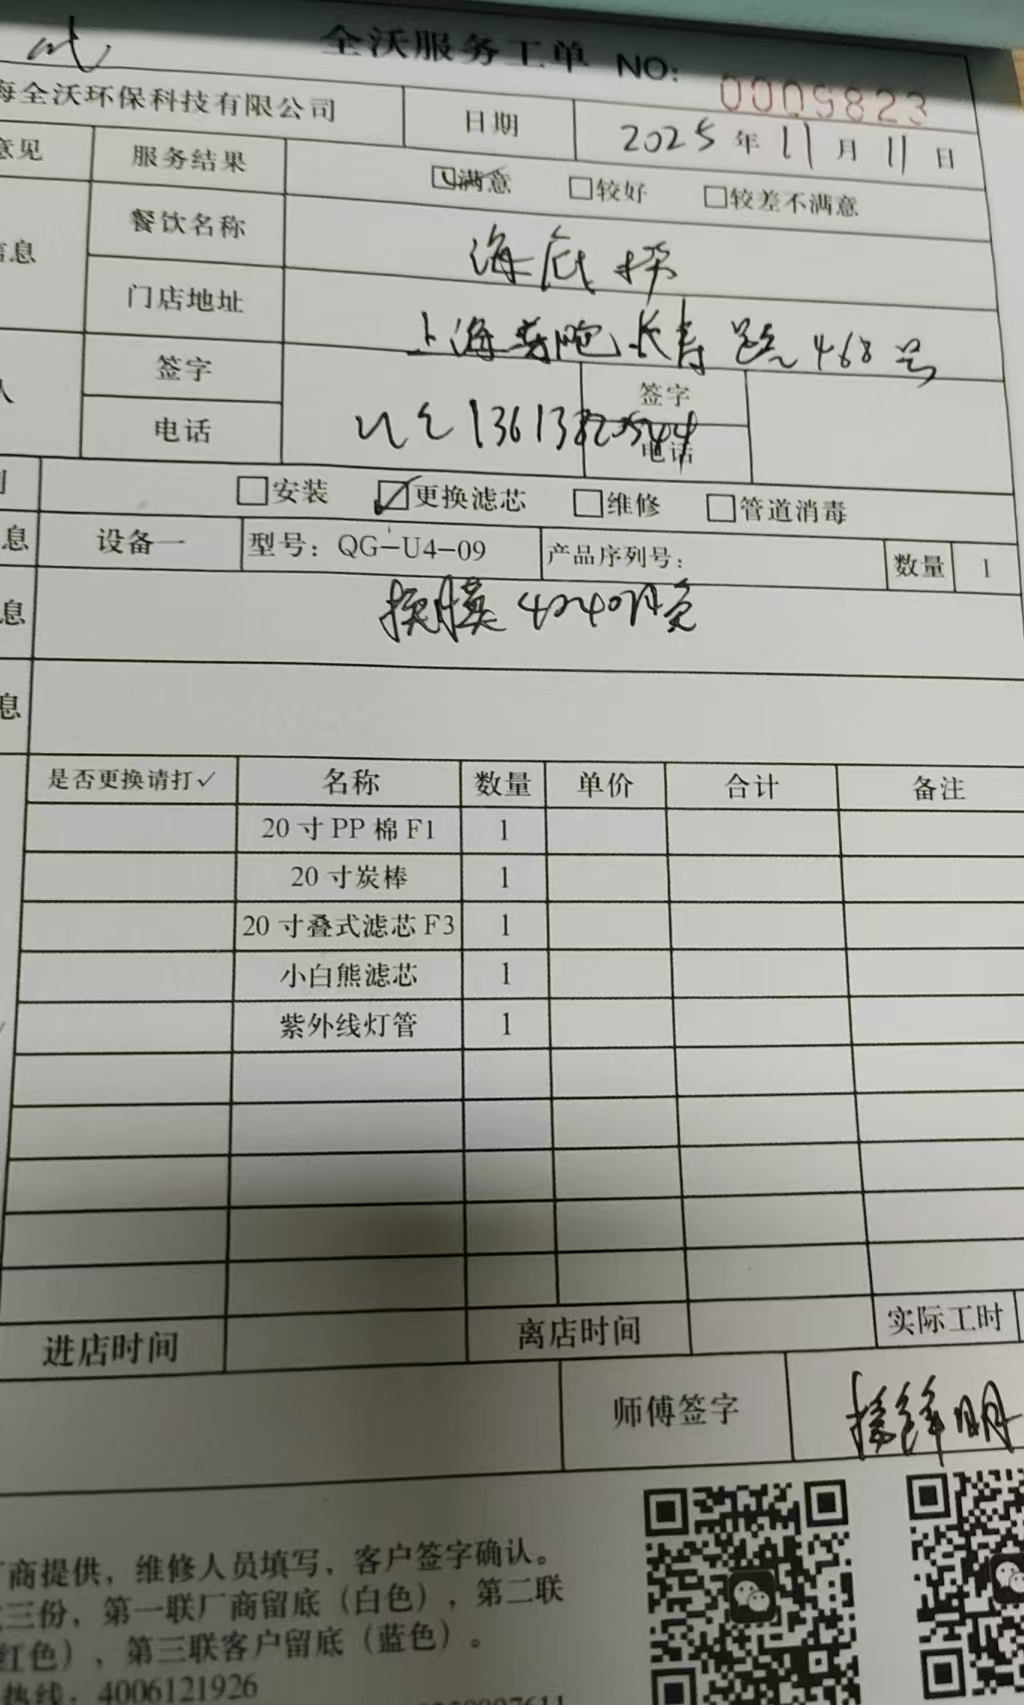 全沃服务工单 NO: 0009823
海全沃环保科技有限公司 日期 2025年11月11日
意见 服务结果 满意 较好 较差不满意
餐饮名称 海底捞
息 门店地址 上海普陀长寿路468号
人 签字 签字
电话 电话
安装 更换滤芯 维修 管道消毒
息 设备一 型号: QG-U4-09 产品序列号: 数量 1
息 换膜4040
息
是否更换请打✓ 名称 数量 单价 合计 备注
20寸PP棉F1 1
20寸炭棒 1
20寸叠式滤芯F3 1
小白熊滤芯 1
紫外线灯管 1
进店时间 离店时间 实际工时
师傅签字
商提供，维修人员填写，客户签字确认。
三份，第一联厂商留底（白色），第二联
红色），第三联客户留底（蓝色）。
热线: 4006121926